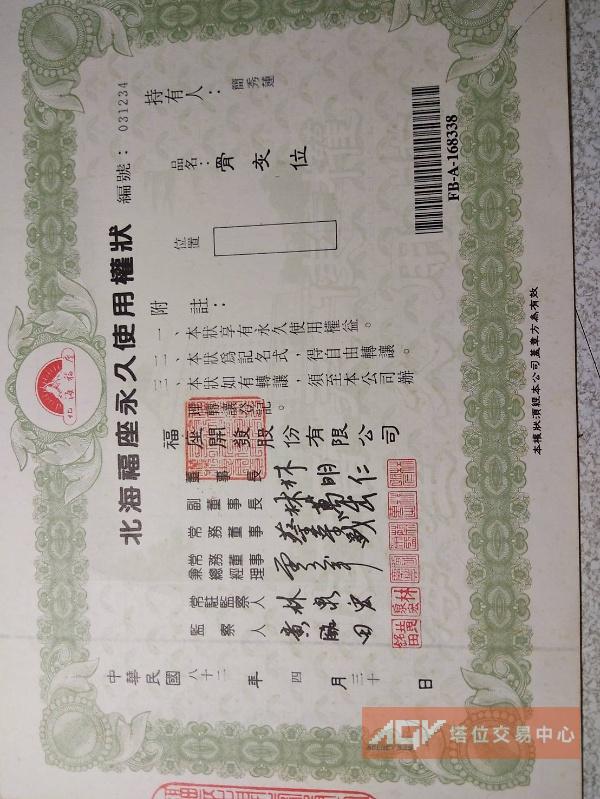 北海福座
北海福座永久使用權狀
編號：031234
持有人：簡秀蓮
品名：骨灰位
位置
附註：
一、本狀享有永久使用權益。
二、本狀為記名式，得自由轉讓。
三、本狀如有轉讓，須至本公司辦
理轉讓登記。
福座開發股份有限公司
董事長
副董事長
常務董事
常務董事
兼總經理
常駐監察人
監察人
中華民國八十二年四月三十日
FB-A-168338
本權狀須經本公司蓋章方為有效
AGV 塔位交易中心